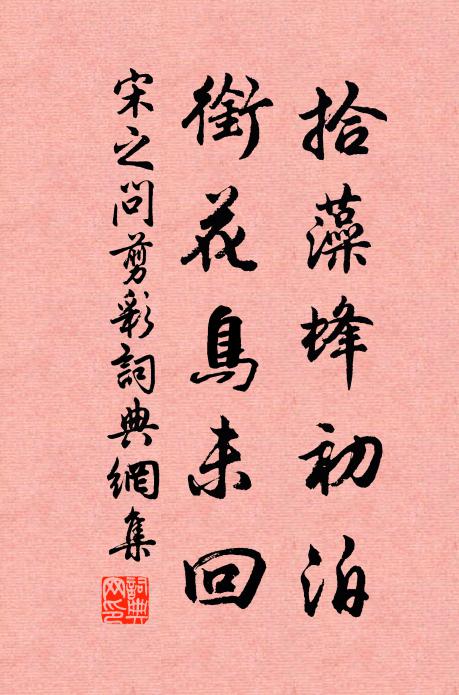 拾藻蜂初泊
銜花鳥未回
宋之問剪彩詞典網集
詞典网印